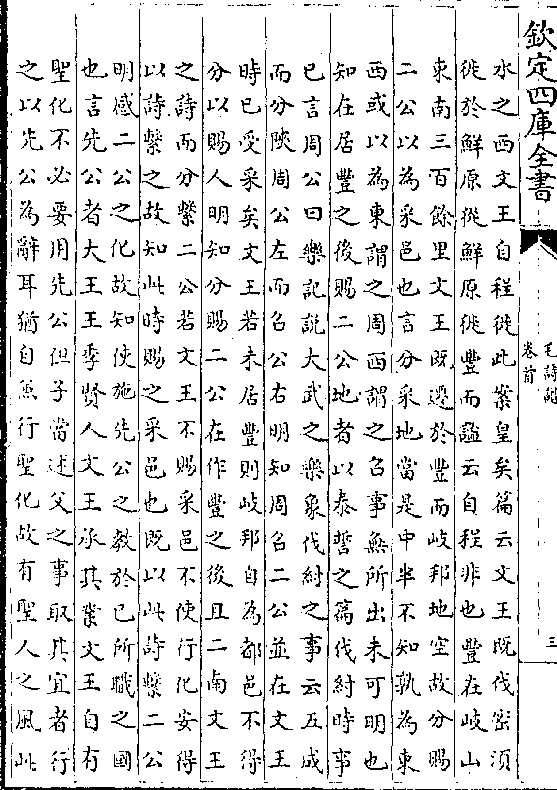 欽定四庫全書
毛詩譜
卷首
三
水之西文王自程徙此案皇矣篇云文王既伐密須
徙於鮮原從鮮原徙豐而謐云自程非也豐在岐山
東南三百餘里文王既遷於豐而岐邦地空故分賜
二公以為采邑也言分采地當是中半不知孰為東
西或以為東謂之周西謂之召事無所出未可明也
知在居豐之後賜二公地者以泰誓之篇伐紂時事
已言周公曰樂記說大武之樂象伐紂之事云五成
而分陝周公左而召公右明知周召二公並在文王
時已受采矣文王若未居豐則岐邦自為都邑不得
分以賜人明知分賜二公在作豐之後且二南文王
之詩而分繫二公若文王不賜采邑不使行化安得
以詩繫之故知此時賜之采邑也既以此詩繫二公
明感二公之化故知使施先公之教於已所職之國
也言先公者大王王季賢人文王承其業文王自有
聖化不必要用先公但子當述父之事取其宜者行
之以先公為辭耳猶自兼行聖化故有聖人之風此